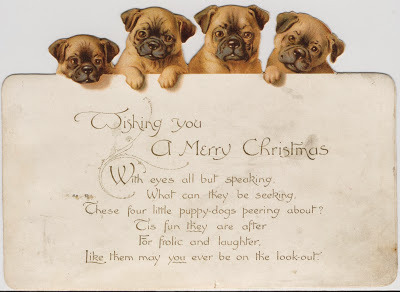 Wishing you
A Merry Christmas
With eyes all but speaking,
What can they be seeking,
These four little puppy-dogs peering about?
Tis fun they are after
For frolic and laughter,
Like them may you ever be on the look-out.